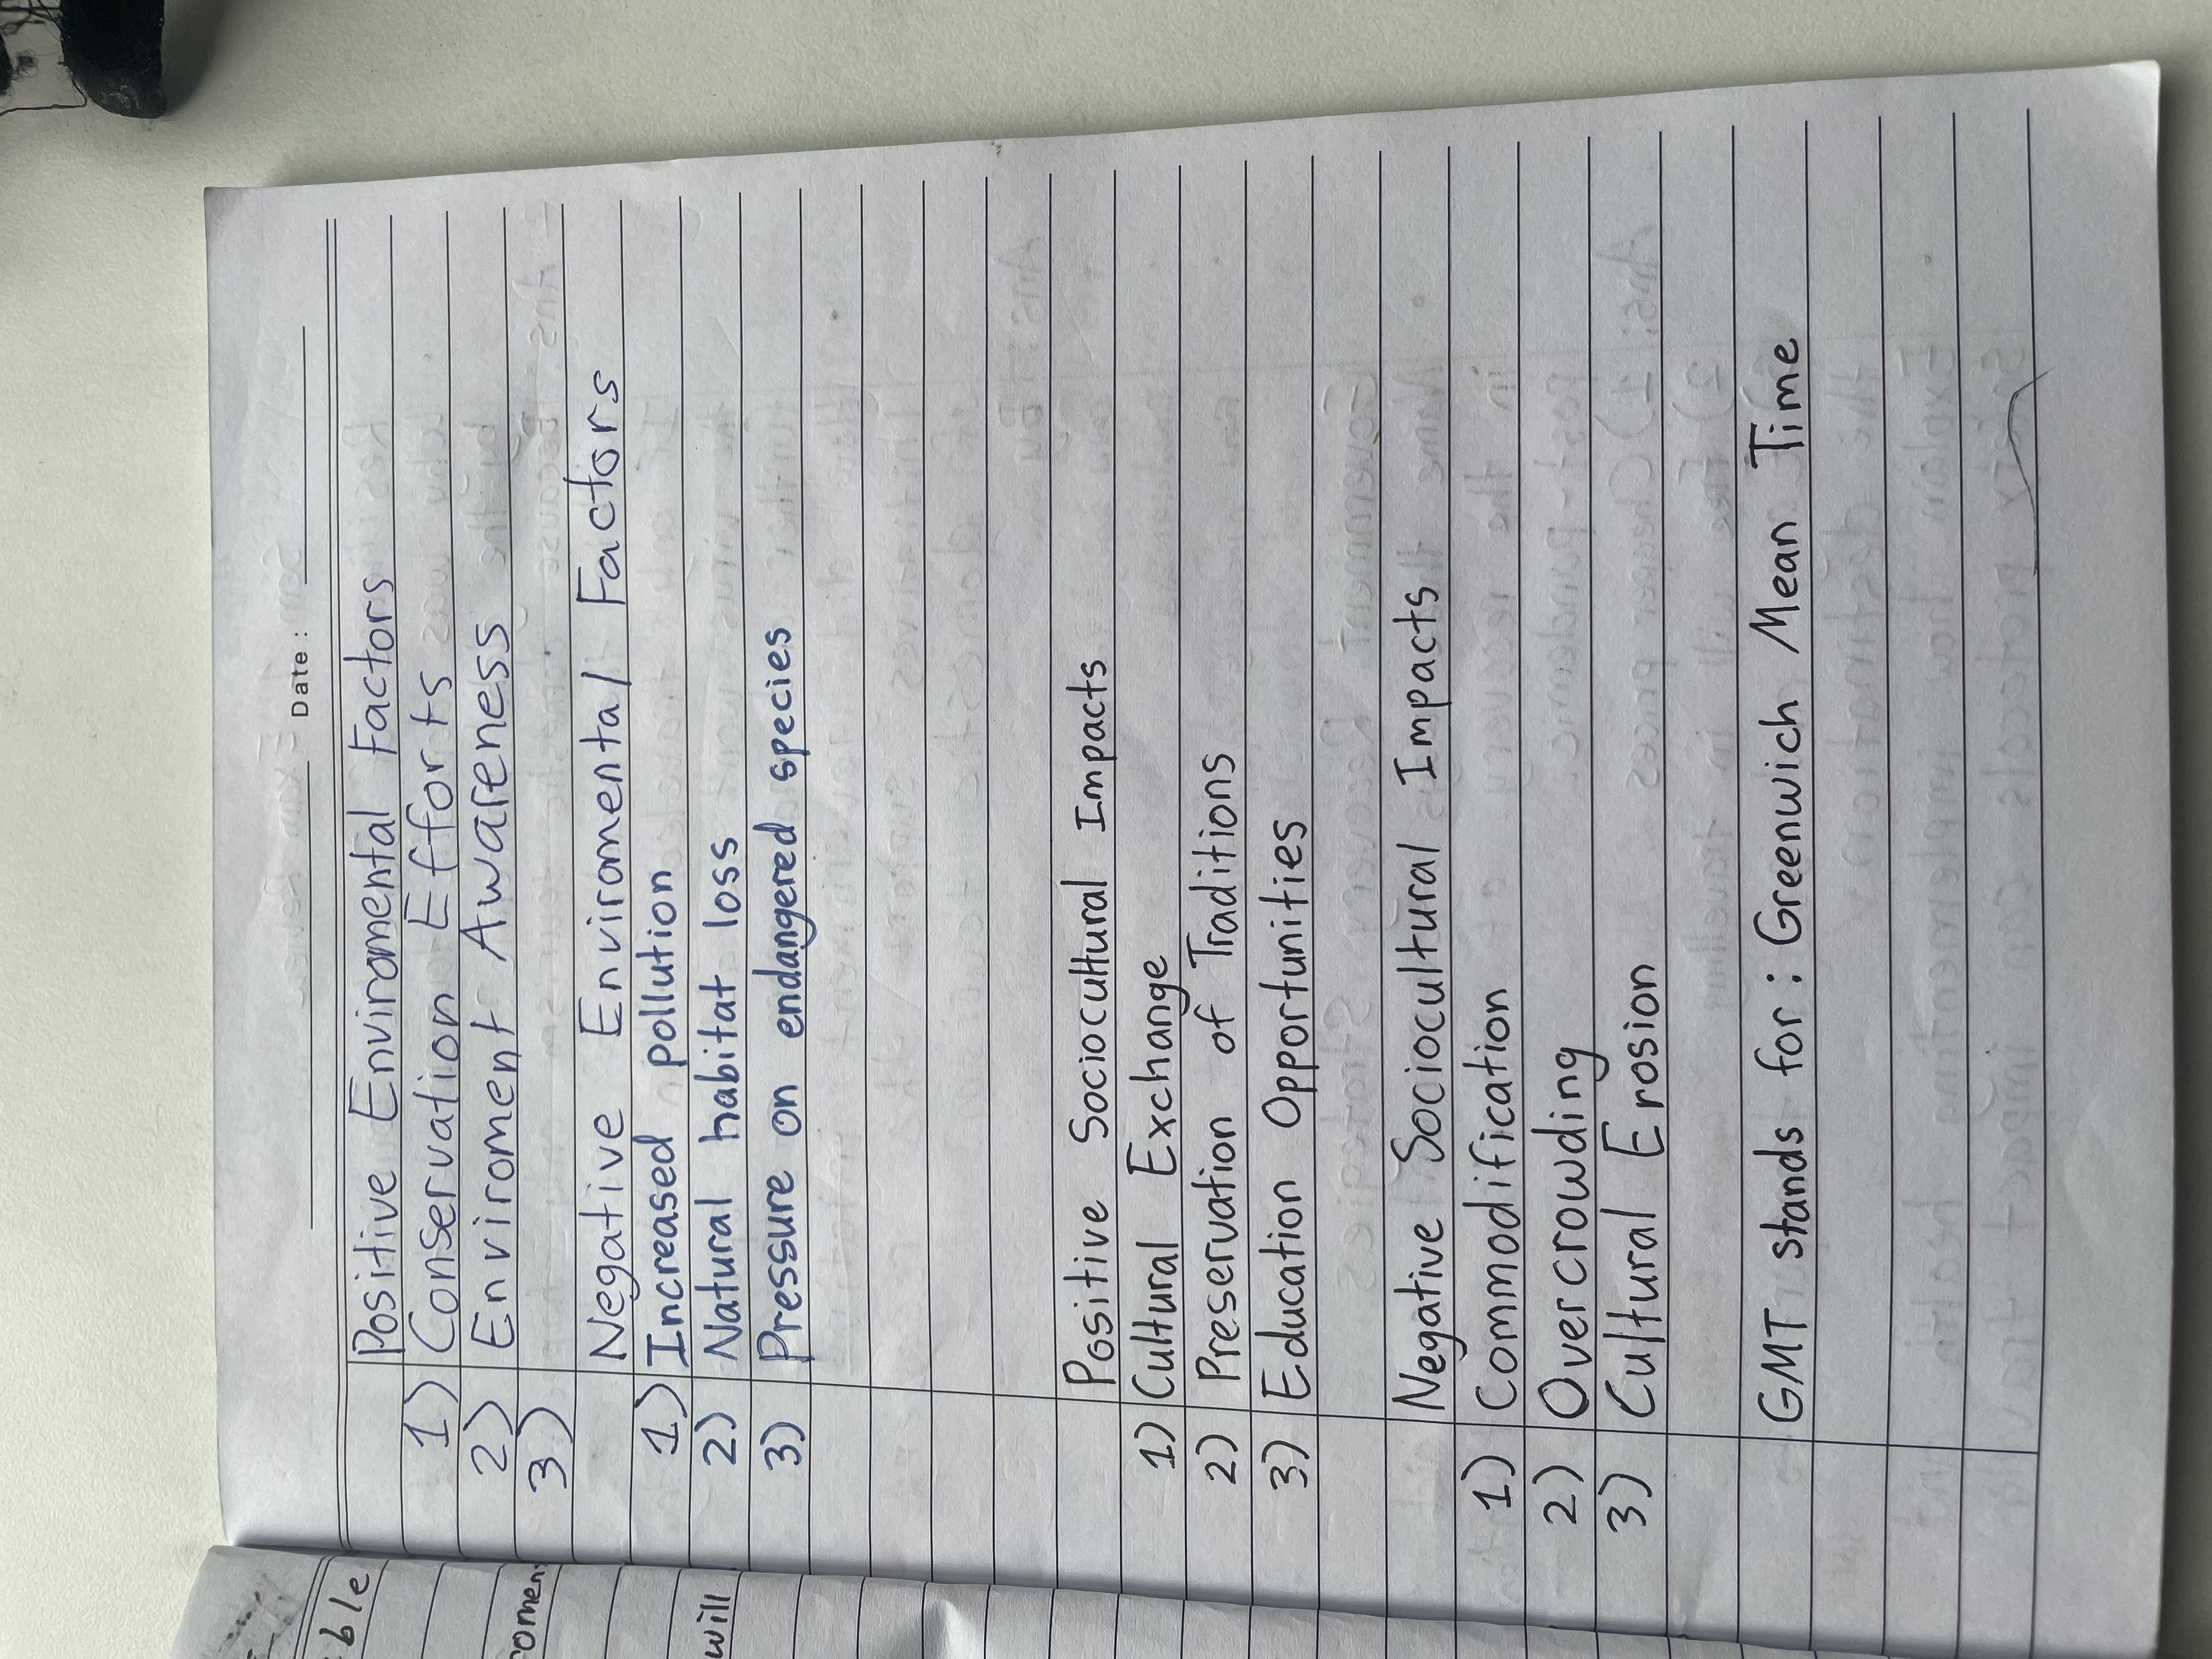 Date:
Positive Enviromental Factors
1) Conservation Efforts
2) Enviroment Awareness
3)
Negative Enviromental Factors
1) Increased pollution
2) Natural habitat loss
3) Pressure on endangered species
Positive Sociocultural Impacts
1) Cultural Exchange
2) Preservation of Traditions
3) Education Opportunities
Negative Sociocultural Impacts
1) Commodification
2) Overcrowding
3) Cultural Erosion
GMT stands for: Greenwich Mean Time
ble
will